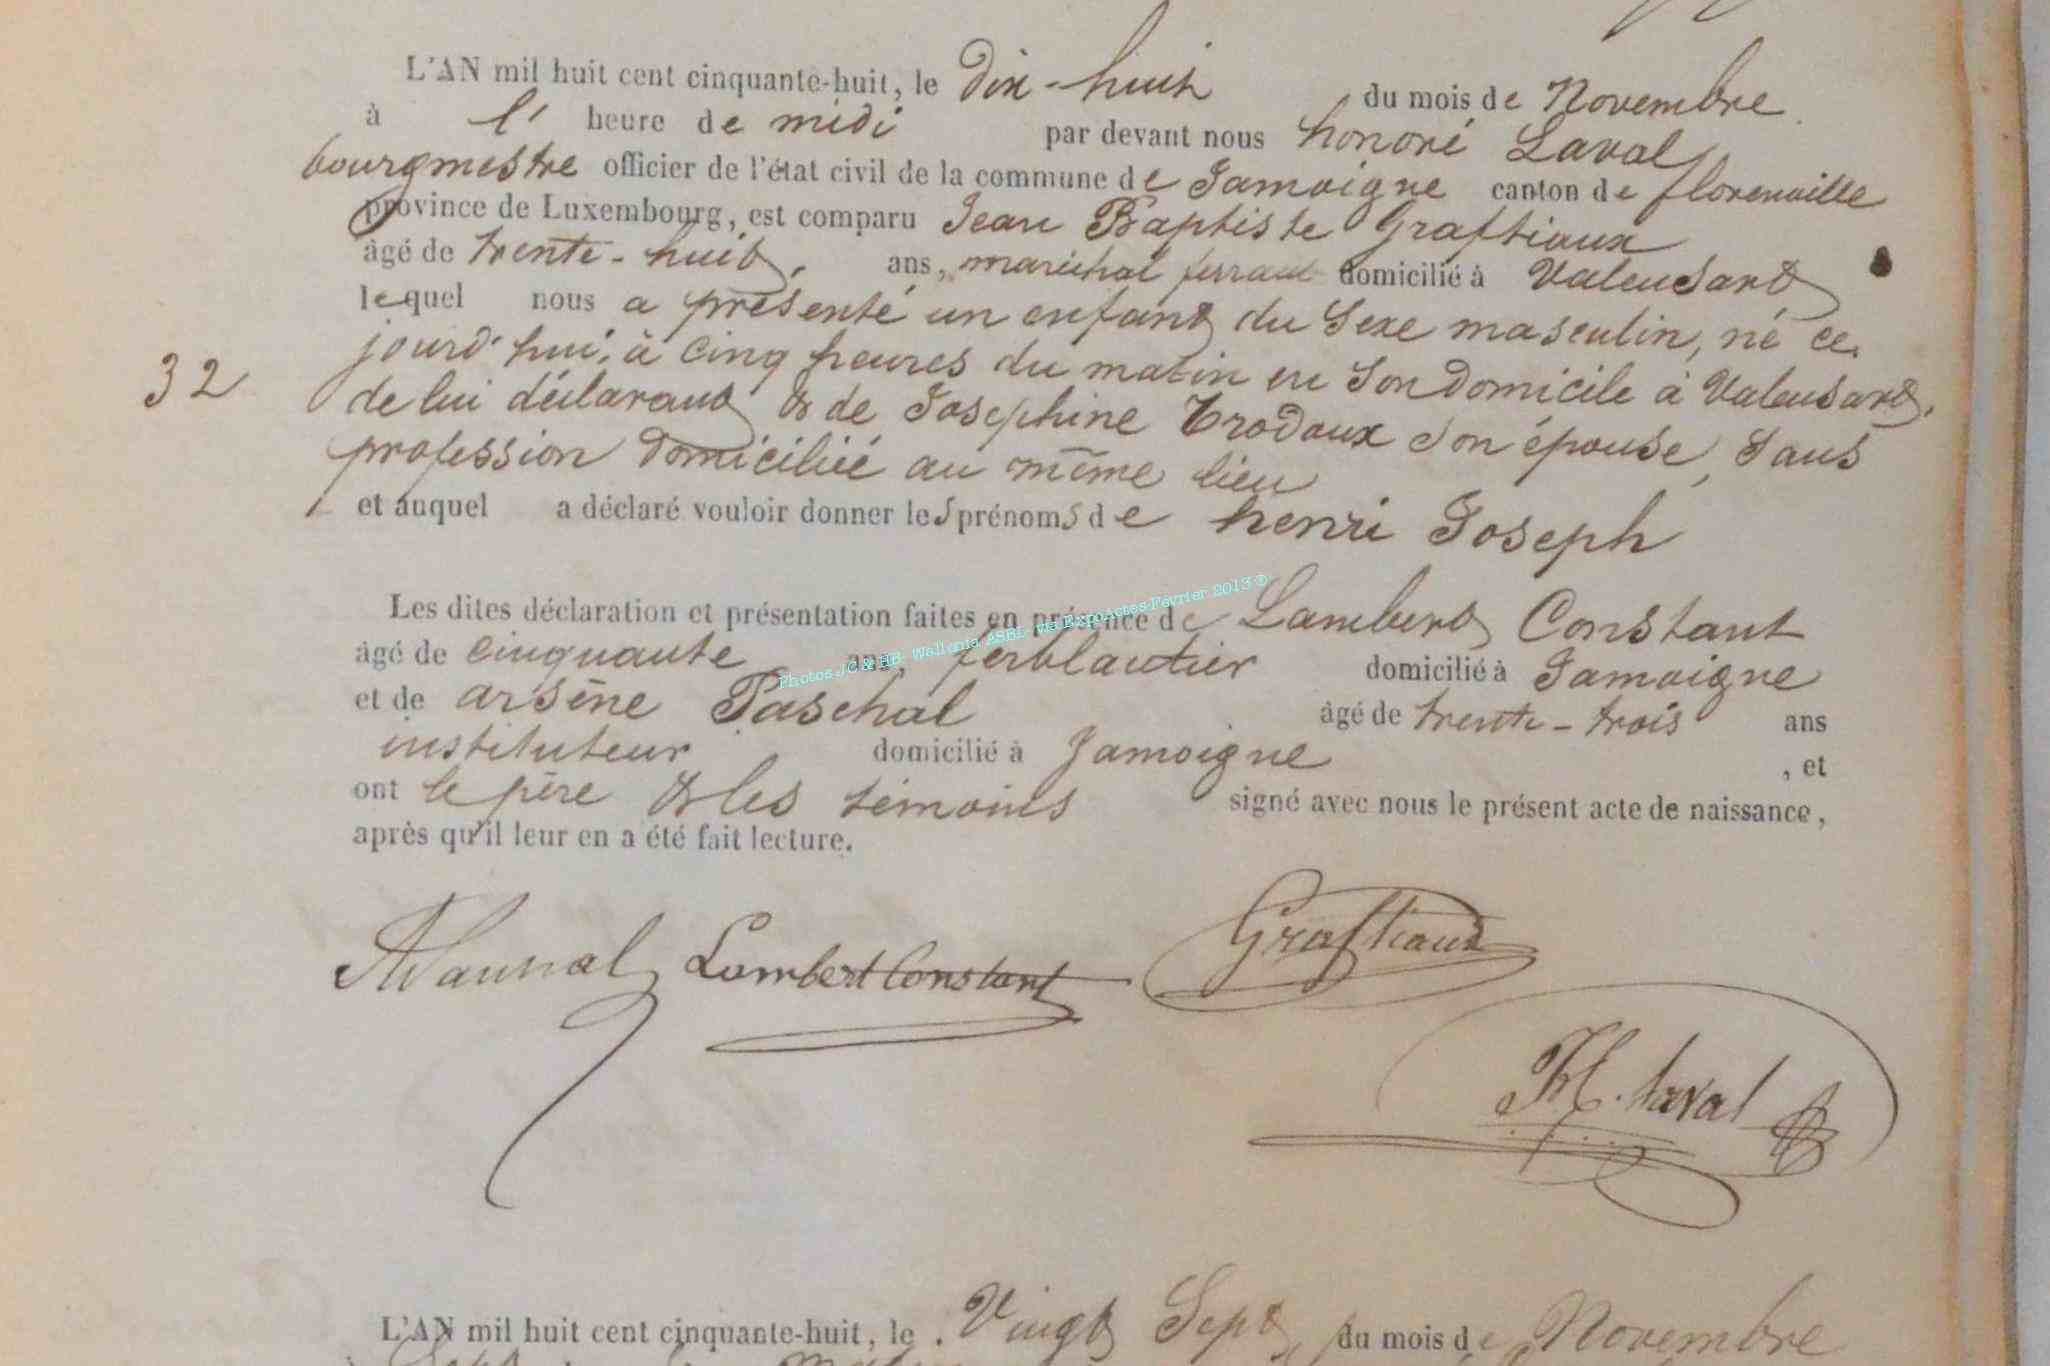 L'AN mil huit cent cinquante-huit, le dix-huit du mois de Novembre
à l' heure de midi par devant nous honoré Laval
bourgmestre officier de l'état civil de la commune de Jamoigne canton de florenville
province de Luxembourg, est comparu Jean Baptiste Graftiaux
âgé de trente-huit, ans, maréchal ferrant domicilié à Valensart
lequel nous a présenté un enfant du Sexe masculin, né ce
jourd'hui, à cinq heures du matin en Son domicile à Valensart,
32
de lui déclarant & de Josephine Trodoux son épouse, Sans
profession domiciliée au même lieu
et auquel a déclaré vouloir donner les prénoms de henri Joseph
Les dites déclaration et présentation faites en présence de Lambert Constant
âgé de cinquante ans, ferblantier domicilié à Jamoigne
Photos JC & HB Wallonia ASBL via ExpoActes Février 2013 ®
et de arsène Paschal âgé de trente-trois ans
instituteur domicilié à Jamoigne , et
ont le père & les témoins signé avec nous le présent acte de naissance,
après qu'il leur en a été fait lecture.
Lambert Constant Graftiaux
H. Laval
L'AN mil huit cent cinquante-huit, le Vingt Sept du mois de Novembre